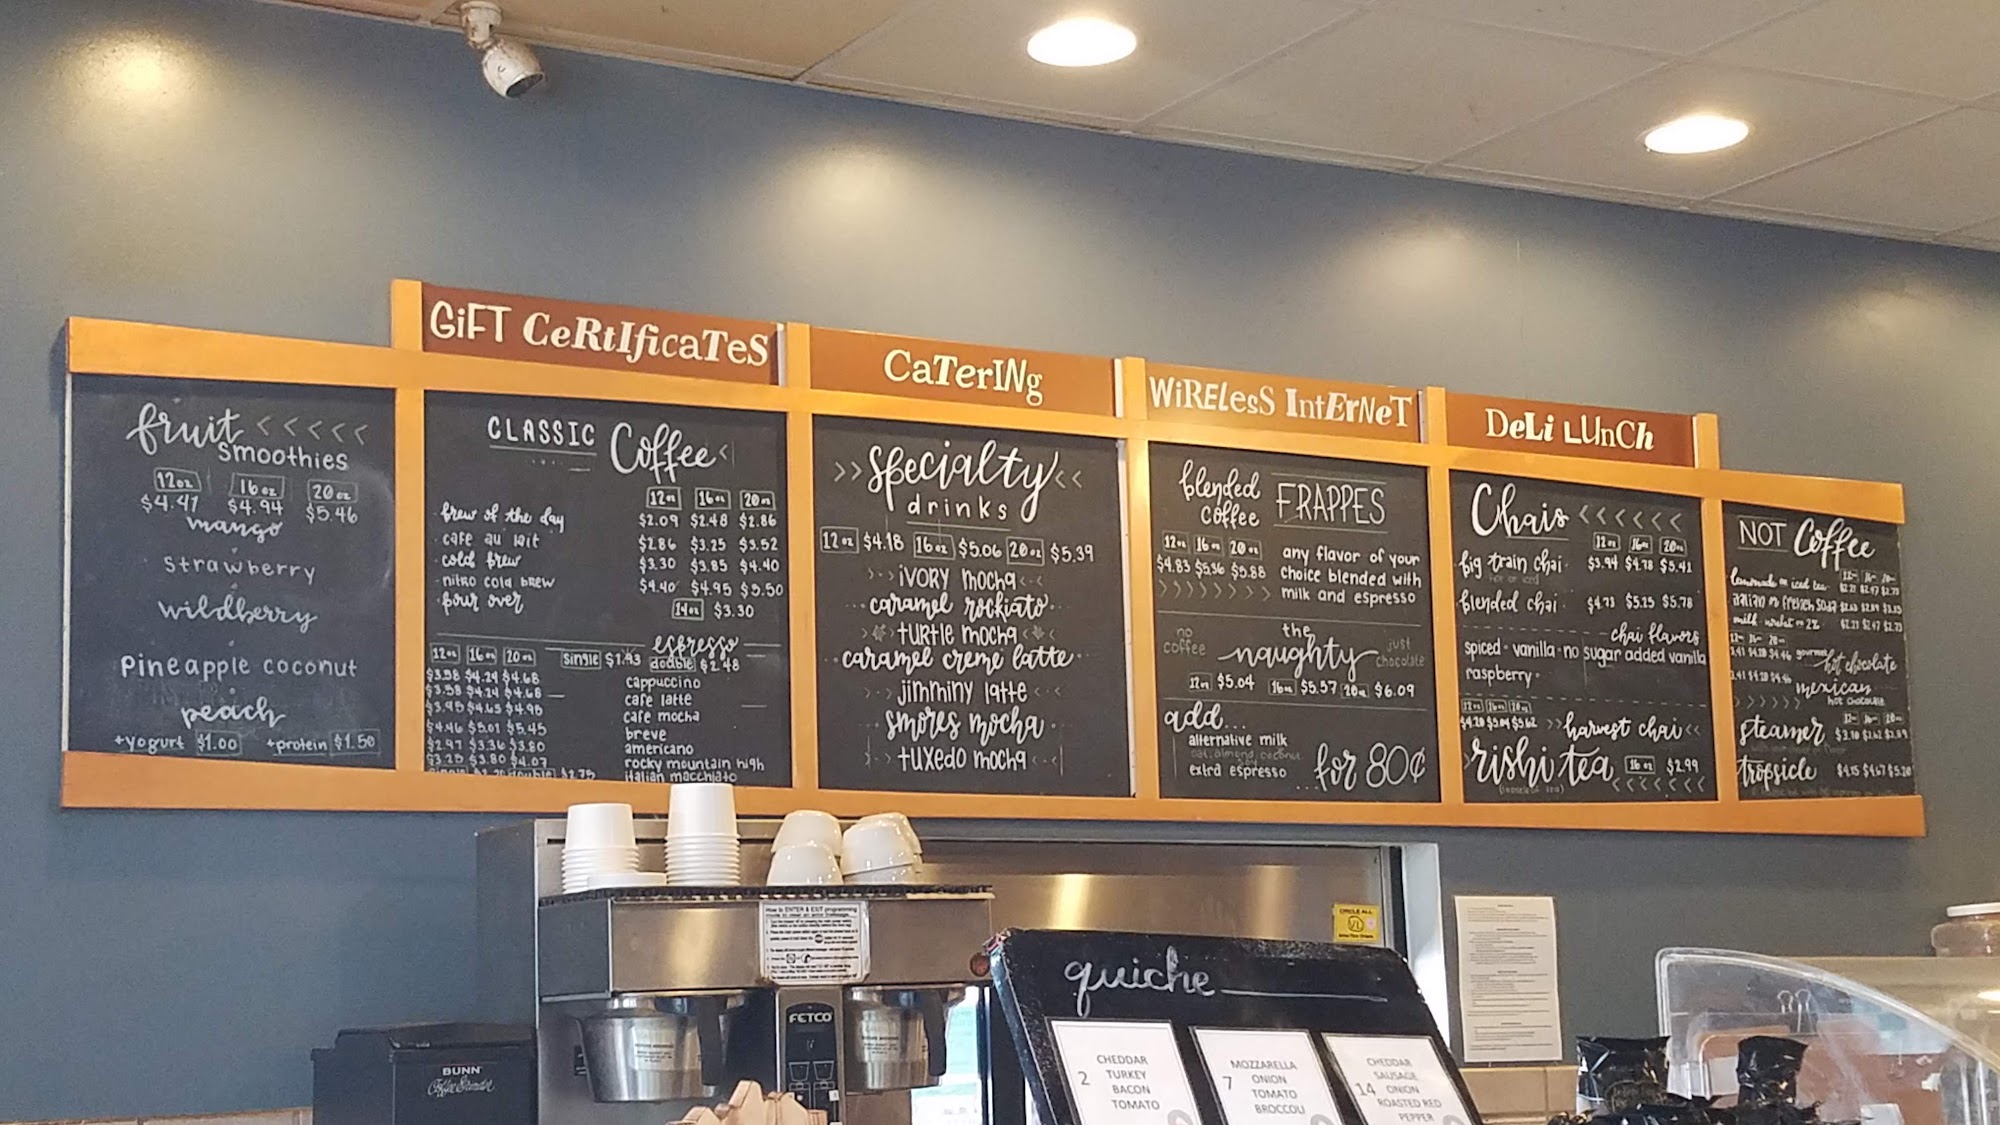 GiFT CeRtIficaTeS
CaTerINg
WiRELesS IntErNeT
DeLi LUnCh
fruit < < < < <
smoothies
12oz 16oz 20oz
$4.47 $4.94 $5.46
mango
strawberry
wildberry
pineapple coconut
peach
+yogurt $1.00 +protein $1.50
CLASSIC Coffee <
12oz 16oz 20oz
· brew of the day $2.09 $2.48 $2.86
· cafe au lait $2.86 $3.25 $3.52
· cold brew $3.30 $3.85 $4.40
· nitro cold brew $4.40 $4.95 $5.50
· pour over 14oz $3.30
espresso
12oz 16oz 20oz single $1.93 double $2.48
$3.58 $4.24 $4.68 cappuccino
$3.58 $4.24 $4.68 cafe latte
$3.95 $4.65 $4.95 cafe mocha
breve
$4.46 $5.01 $5.45
americano
$2.97 $3.36 $3.80
rocky mountain high
$3.25 $3.80 $4.07
italian macchiato
$2.75
>> specialty <<
drinks
12oz $4.18 16oz $5.06 20oz $5.39
ivory mocha
caramel rockiato
turtle mocha
caramel creme latte
jimminy latte
smores mocha
tuxedo mocha
blended coffee FRAPPES
12oz 16oz 20oz
$4.83 $5.36 $5.88
any flavor of your
choice blended with
milk and espresso
no coffee
the
naughty
just chocolate
12oz $5.04 16oz $5.57 20oz $6.09
add...
alternative milk
oat, almond, coconut, soy
extra espresso
for 80¢
Chais < < < < < <
12oz 16oz 20oz
big train chai · $3.94 $4.78 $5.41
hot or iced
blended chai · $4.73 $5.25 $5.78
chai flavors
spiced · vanilla · no sugar added vanilla
raspberry ·
12oz 16oz 20oz
$4.20 $5.04 $5.62 >> harvest chai <<
rishi tea 16oz $2.99
NOT Coffee
lemonade or iced tea
italian or french soda
milk
gourmet hot chocolate
mexican
hot chocolate
steamer
tropsicle $4.15 $4.67 $5.20
FETCO
BUNN
quiche
2 CHEDDAR
TURKEY
BACON
TOMATO
7 MOZZARELLA
ONION
TOMATO
BROCCOLI
14 CHEDDAR
SAUSAGE
ONION
ROASTED RED
PEPPER